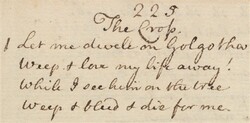 225
The Cross.
1 Let me dwele on Golgotha
Weep & love my life away!
While I see him on the tree
Weep & bleed & die for me.